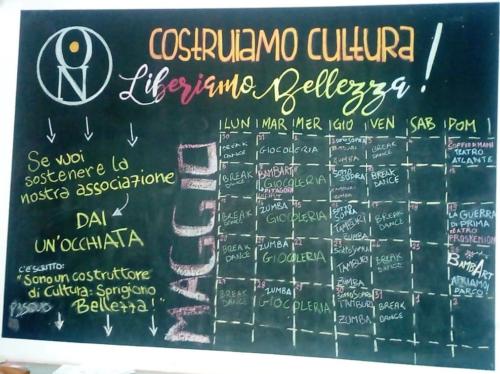 ON
COSTRUIAMO CULTURA
Liberiamo Bellezza!
LUN MAR MER GIO VEN SAB DOM
MAGGIO
Se vuoi
sostenere la
nostra associazione
DAI
UN'OCCHIATA
C'È SCRITTO:
"Sono un costruttore
di Cultura: Sprigiono
Bellezza!"
BREAK DANCE
GIOCOLERIA
ZUMBA
BREAK DANCE
SOFFIO DI MANI
TEATRO
ATLANTE
BREAK DANCE
BAMBART
GIOCOLERIA
SOTTO SOPRA
BREAK DANCE
BREAK DANCE
ZUMBA
GIOCOLERIA
TAMBURI
ZUMBA
BREAK DANCE
LA GUERRA
DI PRIMA
TEATRO
PROSKENION
BREAK DANCE
ZUMBA
GIOCOLERIA
TAMBURI
ZUMBA
BREAK DANCE
BAMBART
APRIAMO
PARCO!
BREAK DANCE
28
ZUMBA
GIOCOLERIA
TAMBURI
ZUMBA
31
BREAK DANCE
1
2